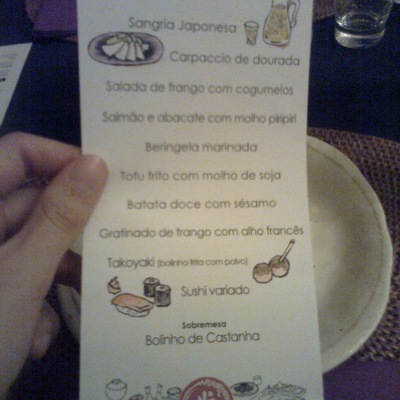 Sangria Japonesa
Carpaccio de dourada
Salada de frango com cogumelos
Salmão e abacate com molho piripiri
Beringela marinada
Tofu frito com molho de soja
Batata doce com sésamo
Gratinado de frango com alho francês
Takoyaki (bolinha frita com polvo)
Sushi variado
Sobremesa
Bolinho de Castanha